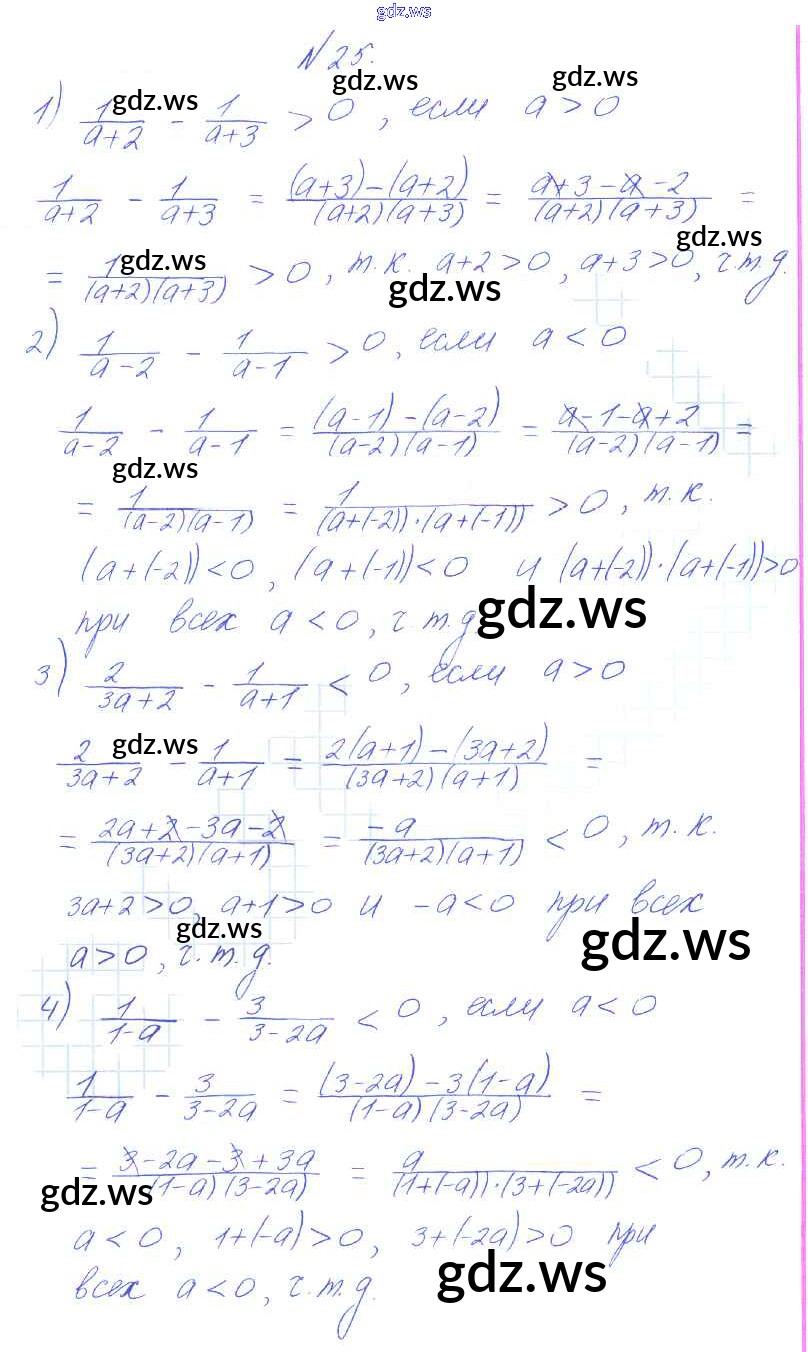 gdz.ws
N 25.
1) 1/(a+2) - 1/(a+3) > 0, если a > 0
gdz.ws gdz.ws gdz.ws
1/(a+2) - 1/(a+3) = ((a+3)-(a+2))/((a+2)(a+3)) = (a+3-a-2)/((a+2)(a+3)) =
= 1/((a+2)(a+3)) > 0, т.к. a+2>0, a+3>0, ч.т.д.
gdz.ws gdz.ws gdz.ws
2) 1/(a-2) - 1/(a-1) > 0, если a < 0
1/(a-2) - 1/(a-1) = ((a-1)-(a-2))/((a-2)(a-1)) = (a-1-a+2)/((a-2)(a-1)) =
gdz.ws
= 1/((a-2)(a-1)) = 1/((a+(-2))·(a+(-1))) > 0, т.к.
(a+(-2))<0, (a+(-1))<0 и (a+(-2))·(a+(-1))>0
при всех a<0, ч.т.д.
gdz.ws
3) 2/(3a+2) - 1/(a+1) < 0, если a > 0
gdz.ws
2/(3a+2) - 1/(a+1) = (2(a+1)-(3a+2))/((3a+2)(a+1)) =
= (2a+2-3a-2)/((3a+2)(a+1)) = -a/((3a+2)(a+1)) < 0, т.к.
3a+2>0, a+1>0 и -a<0 при всех
gdz.ws gdz.ws
a>0, ч.т.д.
4) 1/(1-a) - 3/(3-2a) < 0, если a < 0
1/(1-a) - 3/(3-2a) = ((3-2a)-3(1-a))/((1-a)(3-2a)) =
= (3-2a-3+3a)/((1-a)(3-2a)) = a/((1+(-a))·(3+(-2a))) < 0, т.к.
gdz.ws
a<0, 1+(-a)>0, 3+(-2a)>0 при
всех a<0, ч.т.д.
gdz.ws